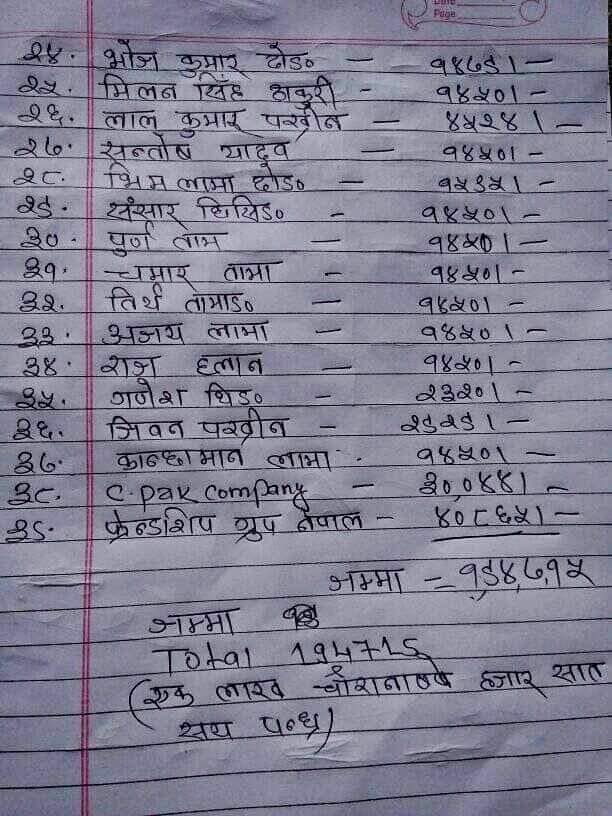 Date
Page
२४. भोज कुमार दोङ० — १४७९।—
२५. मिलन सिंह ठाकुरी - १४५०।—
२६. लाल कुमार पख्रीन — ४५२४।—
२७. सन्तोष यादव — १४५०।—
२८. भिम लामा दोङ० — १५३५।—
२९. संसार घिसिङ० - १४५०।—
३०. पुर्ण लामा — १४५०।—
३१. चमार लामा - १४५०।-
३२. तिर्थ तामाङ० — १४५०।-
३३. अजय लामा — १४५०।-
३४. राज ह्लान — १४५०।-
३५. गणेश थिङ० — २३२०।-
३६. जिवन पख्रीन - २९२९।-
३७. कान्छामान लामा . १४५०।-
३८. C.pak company — ३०,०४४।-
३९. फ्रेन्डशिप ग्रुप नेपाल - ४०८६५।—
जम्मा = १,९४,७१५
जम्मा
Total 194715
(एक लाख चौरानाब्बे हजार सात
सय पन्ध्र)